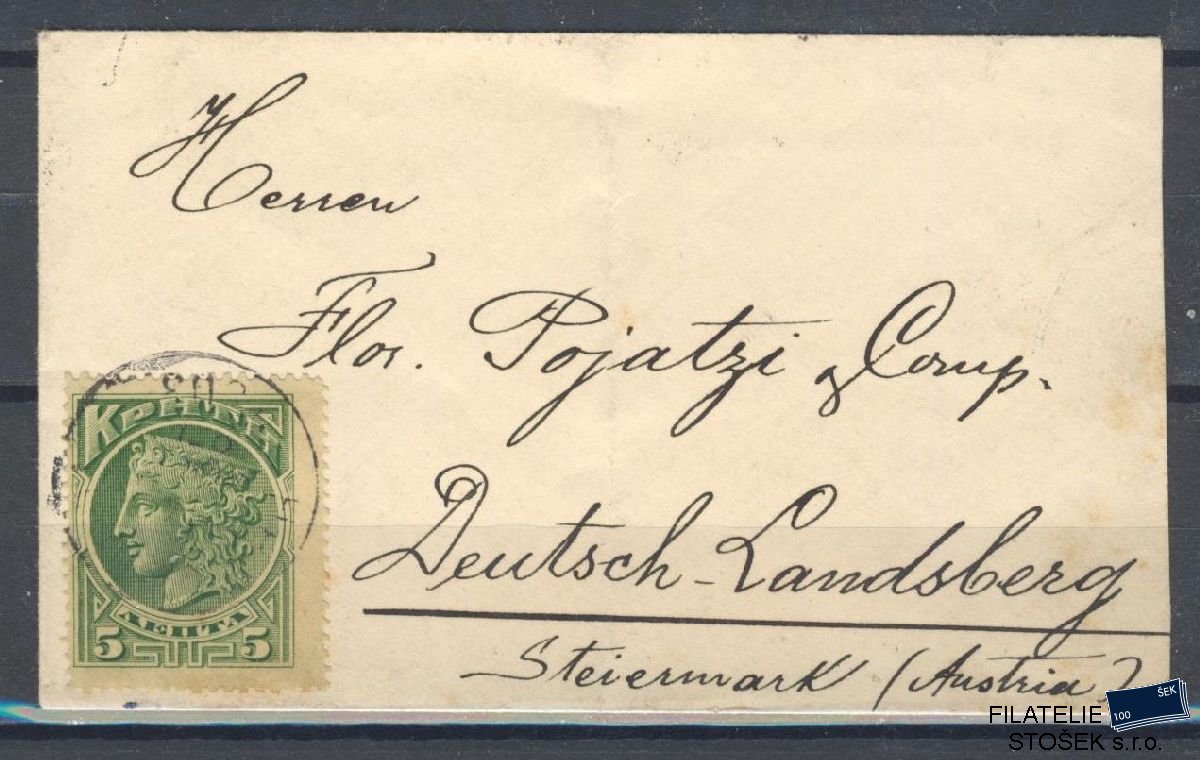 Herren
Flor. Pojatzi & Comp.
Deutsch-Landsberg
Steiermark (Austria)
ΚΡΗΤΗ
ΛΕΠΤΑ
5 5
100 ŠEK
FILATELIE
STOŠEK s.r.o.